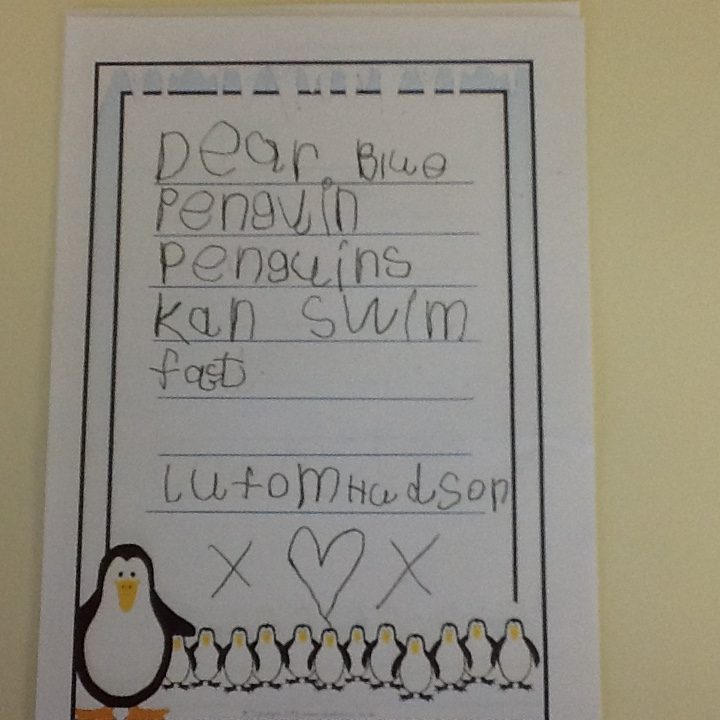 Dear Blue
Penguin
Penguins
kan swim
fast
lufom Hudson
X X